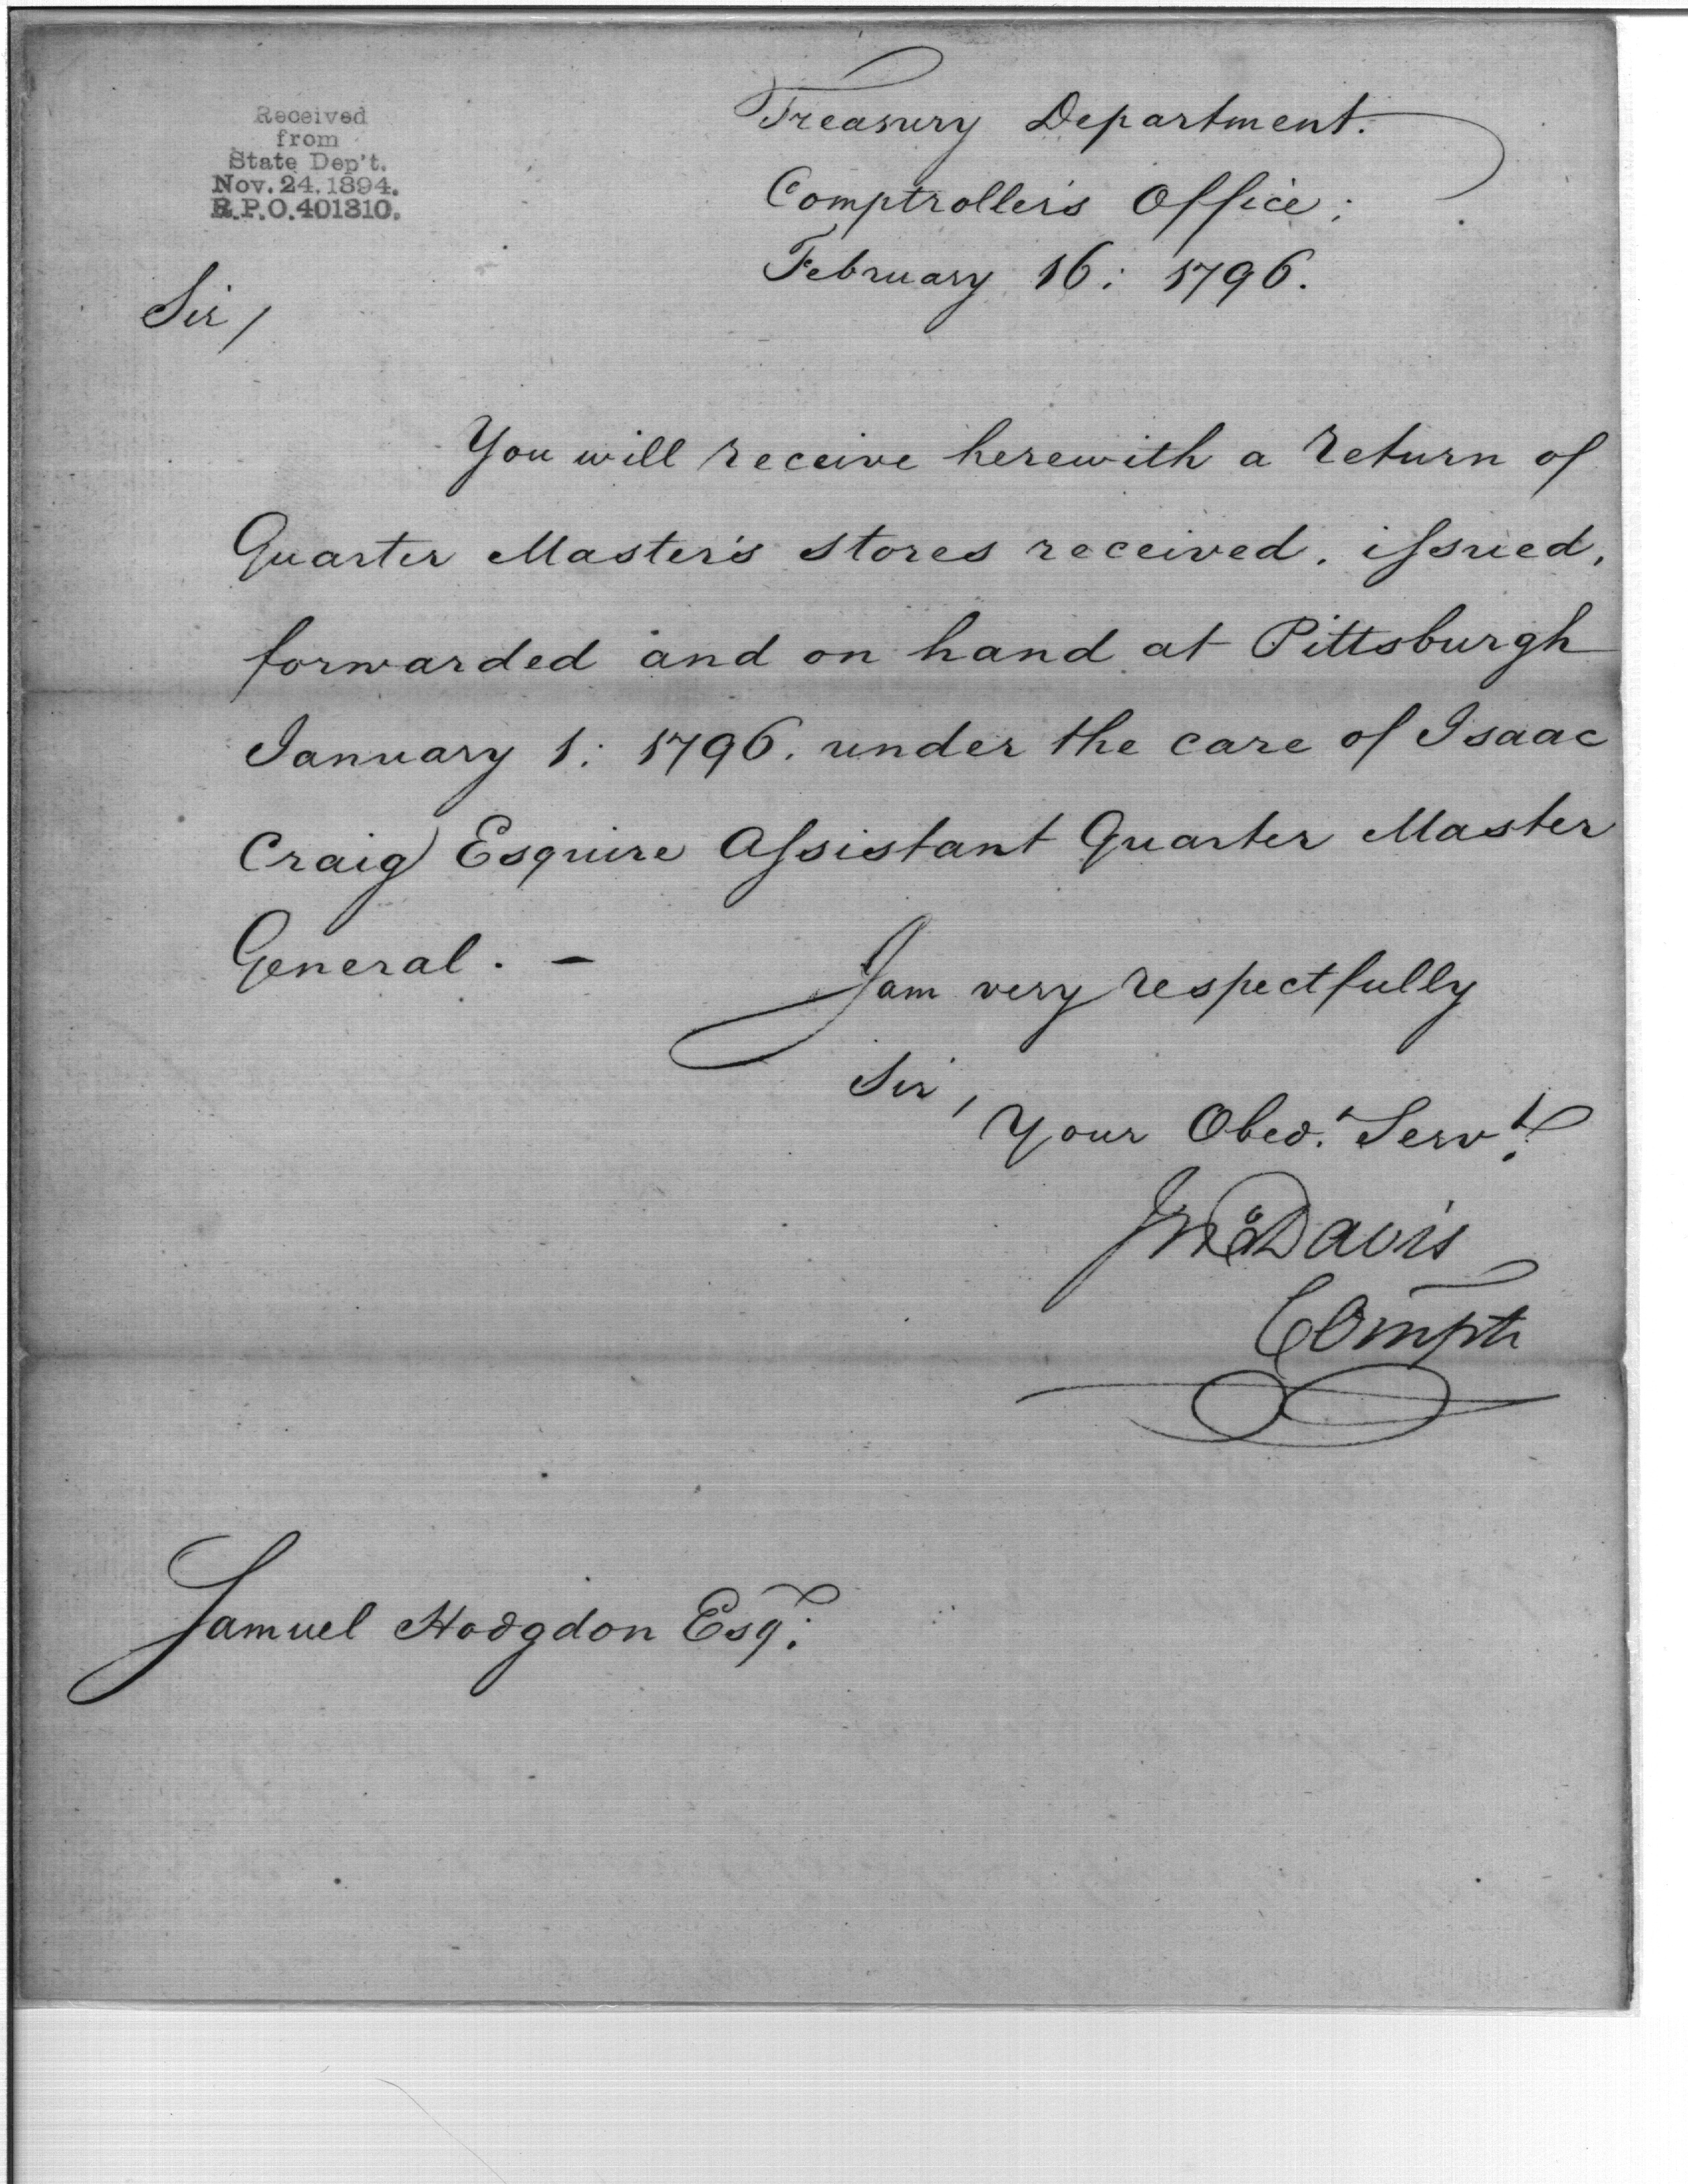 Received
from
State Dep't.
Nov. 24. 1894.
R.P.O. 401310.
Treasury Department.
Comptroller's Office;
February 16: 1796.
Sir /
You will receive herewith a return of
Quarter Master's stores received. ifsued,
forwarded and on hand at Pittsburgh
January 1: 1796. under the care of Isaac
Craig Esquire Afsistant Quarter Master
General. -
I am very respectfully
Sir,
Your Obed.t Serv.t
Jno Davis
Comptr
Samuel Hodgdon Esqr.